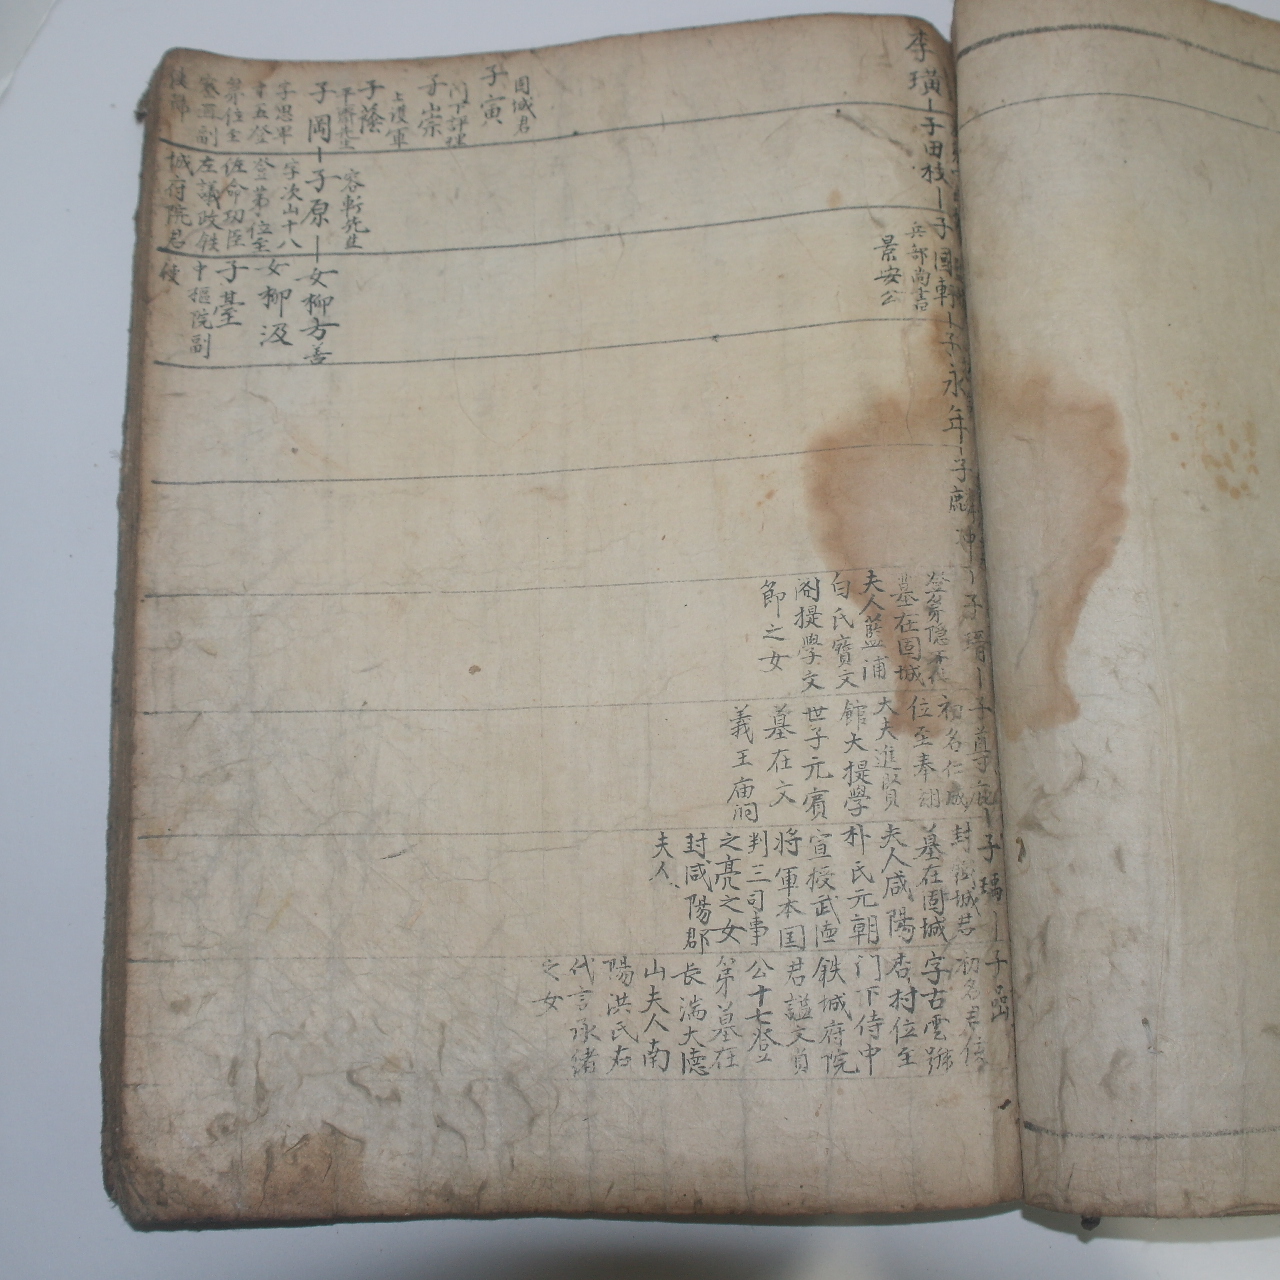 李璜
子田枝
子國軒
兵部尚書
景安公
子永年
子麟冲
子瑨
登第隱不仕
墓在固城
夫人藍浦
白氏寶文
閣提學文
節之女
子尊庇
初名仁成
位至奉翊
大夫進賢
館大提學
世子元賓
墓在文
義王庙洞
子瑀
封鉄城君
墓在固城
夫人咸陽
朴氏元朝
宣授武德
將軍本国
判三司事
之亮之女
封咸陽郡
夫人
子嵒
初名君侅
字古雲號
杏村位至
门下侍中
鉄城府院
君謚文貞
公十七登
第墓在
長湍大德
山夫人南
陽洪氏右
代言承緒
之女
固城君
子寅
门下評理
子崇
上護軍
子蔭
平齋先生
子岡
字思軍
十五登
第位至
密直副
使謚
容軒先生
子原
字次山十八
登第位至
佐命功臣
左議政鉄
城府院君
女柳方善
女柳汲
子䑓
中樞院副
使